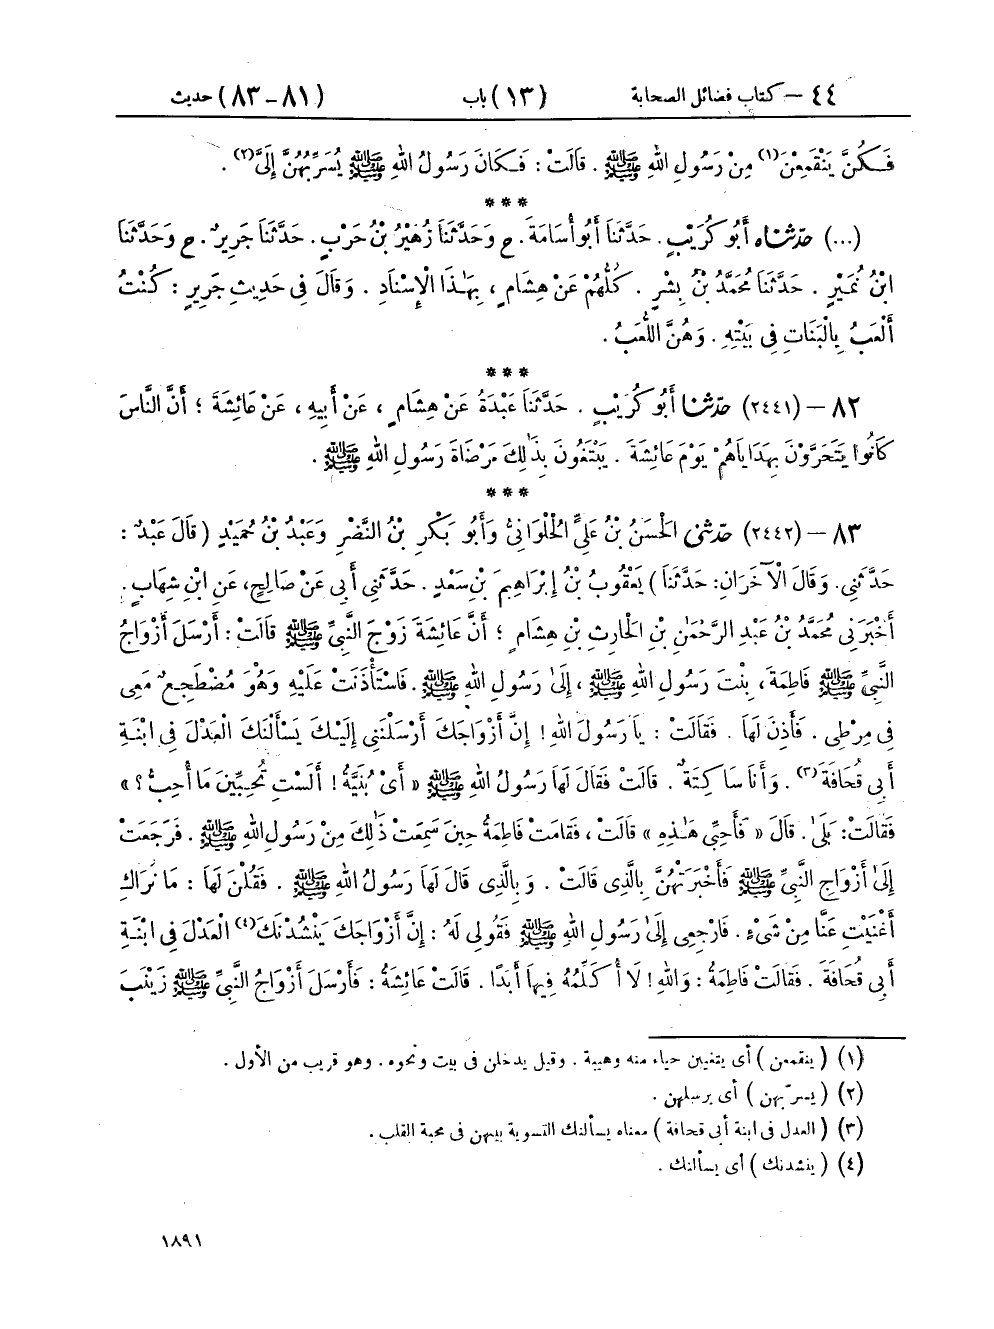 ٤٤ – كتاب فضائل الصحابة (١٣) باب (٨١-٨٣) حديث
فَكُنَّ يَنْقَمِعْنَ(١) مِنْ رَسُولِ اللهِ ﷺ . قَالَتْ : فَكَانَ رَسُولُ اللهِ ﷺ يُسَرِّبُهُنَّ إِلَىَّ(٢) .
***
(...) حدّثناه أَبُو كُرَيْبٍ . حَدَّثَنَا أَبُو أُسَامَةَ . ح وَحَدَّثَنَا زُهَيْرُ بْنُ حَرْبٍ . حَدَّثَنَا جَرِيرٌ . ح وَحَدَّثَنَا
ابْنُ نُمَيْرٍ . حَدَّثَنَا مُحَمَّدُ بْنُ بِشْرٍ . كُلُّهُمْ عَنْ هِشَامٍ ، بِهَٰذَا الْإِسْنَادِ . وَقَالَ فِى حَدِيثِ جَرِيرٍ : كُنْتُ
أَلْعَبُ بِالْبَنَاتِ فِى بَيْتِهِ . وَهُنَّ اللُّعَبُ .
***
٨٢ – (٢٤٤١) حدّثنا أَبُو كُرَيْبٍ . حَدَّثَنَا عَبْدَةُ عَنْ هِشَامٍ ، عَنْ أَبِيهِ ، عَنْ عَائِشَةَ ؛ أَنَّ النَّاسَ
كَانُوا يَتَحَرَّوْنَ بِهَدَايَاهُمْ يَوْمَ عَائِشَةَ . يَبْتَغُونَ بِذَٰلِكَ مَرْضَاةَ رَسُولِ اللهِ ﷺ .
***
٨٣ – (٢٤٤٢) حدّثنى الْحَسَنُ بْنُ عَلِيٍّ الْحُلْوَانِىُّ وَأَبُو بَكْرِ بْنُ النَّضْرِ وَعَبْدُ بْنُ حُمَيْدٍ ( قَالَ عَبْدٌ :
حَدَّثَنِى. وَقَالَ الْآخَرَانِ: حَدَّثَنَا ) يَعْقُوبُ بْنُ إِبْرَاهِيمَ بْنِ سَعْدٍ . حَدَّثَنِى أَبِى عَنْ صَالِحٍ، عَنِ ابْنِ شِهَابٍ .
أَخْبَرَنِى مُحَمَّدُ بْنُ عَبْدِ الرَّحْمَٰنِ بْنِ الْحَارِثِ بْنِ هِشَامٍ ؛ أَنَّ عَائِشَةَ زَوْجَ النَّبِيِّ ﷺ قَالَتْ : أَرْسَلَ أَزْوَاجُ
النَّبِيِّ ﷺ فَاطِمَةَ ، بِنْتَ رَسُولِ اللهِ ﷺ ، إِلَىٰ رَسُولِ اللهِ ﷺ . فَاسْتَأْذَنَتْ عَلَيْهِ وَهُوَ مُضْطَجِعٌ مَعِى
فِى مِرْطِى . فَأَذِنَ لَهَا . فَقَالَتْ : يَا رَسُولَ اللهِ ! إِنَّ أَزْوَاجَكَ أَرْسَلْنَنِى إِلَيْكَ يَسْأَلْنَكَ الْعَدْلَ فِى ابْنَةِ
أَبِى قُحَافَةَ(٣) . وَأَنَا سَاكِتَةٌ . قَالَتْ فَقَالَ لَهَا رَسُولُ اللهِ ﷺ « أَىْ بُنَيَّةُ ! أَلَسْتِ تُحِبِّينَ مَا أُحِبُّ ؟ »
فَقَالَتْ: بَلَىٰ . قَالَ « فَأَحِبِّى هَٰذِهِ » قَالَتْ ، فَقَامَتْ فَاطِمَةُ حِينَ سَمِعَتْ ذَٰلِكَ مِنْ رَسُولِ اللهِ ﷺ . فَرَجَعَتْ
إِلَىٰ أَزْوَاجِ النَّبِيِّ ﷺ فَأَخْبَرَتْهُنَّ بِالَّذِى قَالَتْ . وَبِالَّذِى قَالَ لَهَا رَسُولُ اللهِ ﷺ . فَقُلْنَ لَهَا : مَا نُرَاكِ
أَغْنَيْتِ عَنَّا مِنْ شَىْءٍ . فَارْجِعِى إِلَىٰ رَسُولِ اللهِ ﷺ فَقُولِى لَهُ : إِنَّ أَزْوَاجَكَ يَنْشُدْنَكَ(٤) الْعَدْلَ فِى ابْنَةِ
أَبِى قُحَافَةَ . فَقَالَتْ فَاطِمَةُ : وَاللهِ ! لَا أُكَلِّمُهُ فِيهَا أَبَدًا . قَالَتْ عَائِشَةُ : فَأَرْسَلَ أَزْوَاجُ النَّبِيِّ ﷺ زَيْنَبَ
(١) ( ينقمعن ) أى يتغيبن حياء منه وهيبة . وقيل يدخلن فى بيت ونحوه . وهو قريب من الأول .
(٢) ( يسرّبهن ) أى يرسلهن .
(٣) ( العدل فى ابنة أبى قحافة ) معناه يسألنك التسوية بينهن فى محبة القلب .
(٤) ( ينشدنك ) أى يسألنك .
١٨٩١